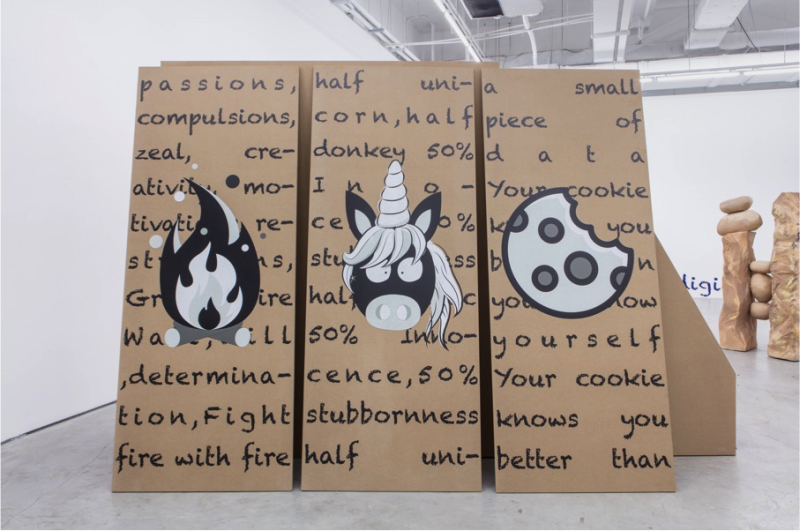 passions,
compulsions,
zeal, cre-
ativity, mo-
re-
,determina-
tion,Fight
fire with fire
half uni-
corn,half
donkey 50%
Inno-
50% Inno-
cence,50%
stubbornness
half uni-
a small
piece of
data
Your cookie
you
yourself
Your cookie
knows you
better than
digi